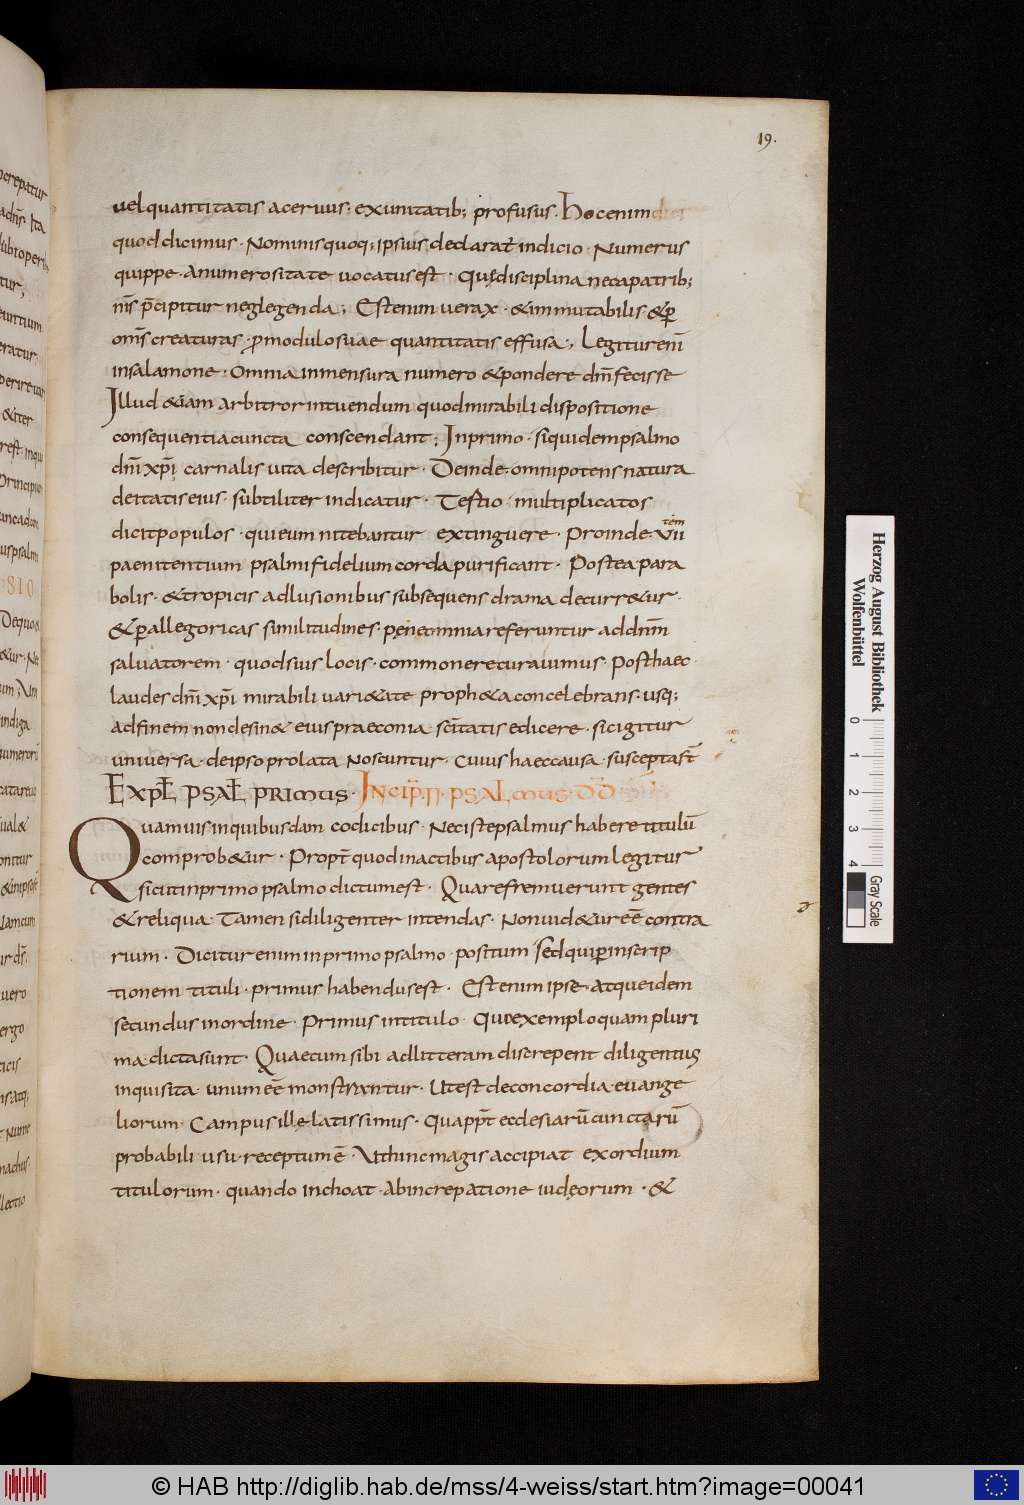 19.
uel quantitatis aceruus; ex unitatib; profusus. Hoc enim dici
quod dicimus. Nominis quoq; ipsius declarat indicio. Numerus
quippe. A numerositate uocatus est. Quę disciplina nec a patrib;
nr̄īs p̄cipitur neglegenda; Est enim uerax. & inmutabilis & ꝑ
om̄s creaturas ꝓ modulo suae quantitatis effusa; Legitur enī
in salamone. Omnia in mensura numero & pondere dn̄m fecisse
Illud &iam arbitror intuendum quod mirabili dispositione
consequentia cuncta conscendant; In primo. siquidem psalmo
dn̄i xp̄i carnalis uita describitur. Deinde. omnipotens natura
deitatis eius. subtiliter indicatur. Testio. multiplicatos
dicit populos. qui eum nitebantur extinguere. Proinde. vii tem
paenitentium psalmi fidelium corda purificant. Postea para
bolis. & tropicis adlusionibus subsequens drama decurr&ur.
& ꝑ allegoricas similitudines. pene omnia referuntur ad dn̄m
saluatorem. quod suis locis. commonere curauimus. Post haec
laudes dn̄i xp̄i mirabili uari&ate proph&a concelebrans. usq;
ad finem non desin& eius praeconia sc̄itatis edicere. sic igitur
uniuersa. de ipso prolata Noscuntur. cuius haec causa. suscepta st̄
Expł psał primus. Incip̄. ii. psalmus. dd̄
Quamuis in quibusdam codicibus. Nec iste psalmus habere titulū
comprob&ur. Propt̄ quod in actibus apostolorum legitur
sicut in primo psalmo dictum est. Quare fremuerunt gentes
& reliqua. Tamen si diligenter intendas. Non uid&ur eē contra
rium. Dicitur enim in primo psalmo. positum sed qui ꝑ inscrip
tionem tituli. primus habendus est. Est enim ipse. atque idem
secundus in ordine. Primus in titulo. Quo exemplo quam pluri
ma. dicta sunt. Quae cum sibi ad litteram discrepent diligentius
inquisita. unum eē monstrantur. Ut est de concordia. euange
liorum. Campus ille latissimus. Quapp̄t ecclesiarū cunctarū
probabili usu. receptum ē. Ut hinc magis accipiat exordium
titulorum. quando inchoat. ab increpatione iudęorum. &
Herzog August Bibliothek
Wolfenbüttel
0 1 2 3 4
Gray Scale
© HAB http://diglib.hab.de/mss/4-weiss/start.htm?image=00041